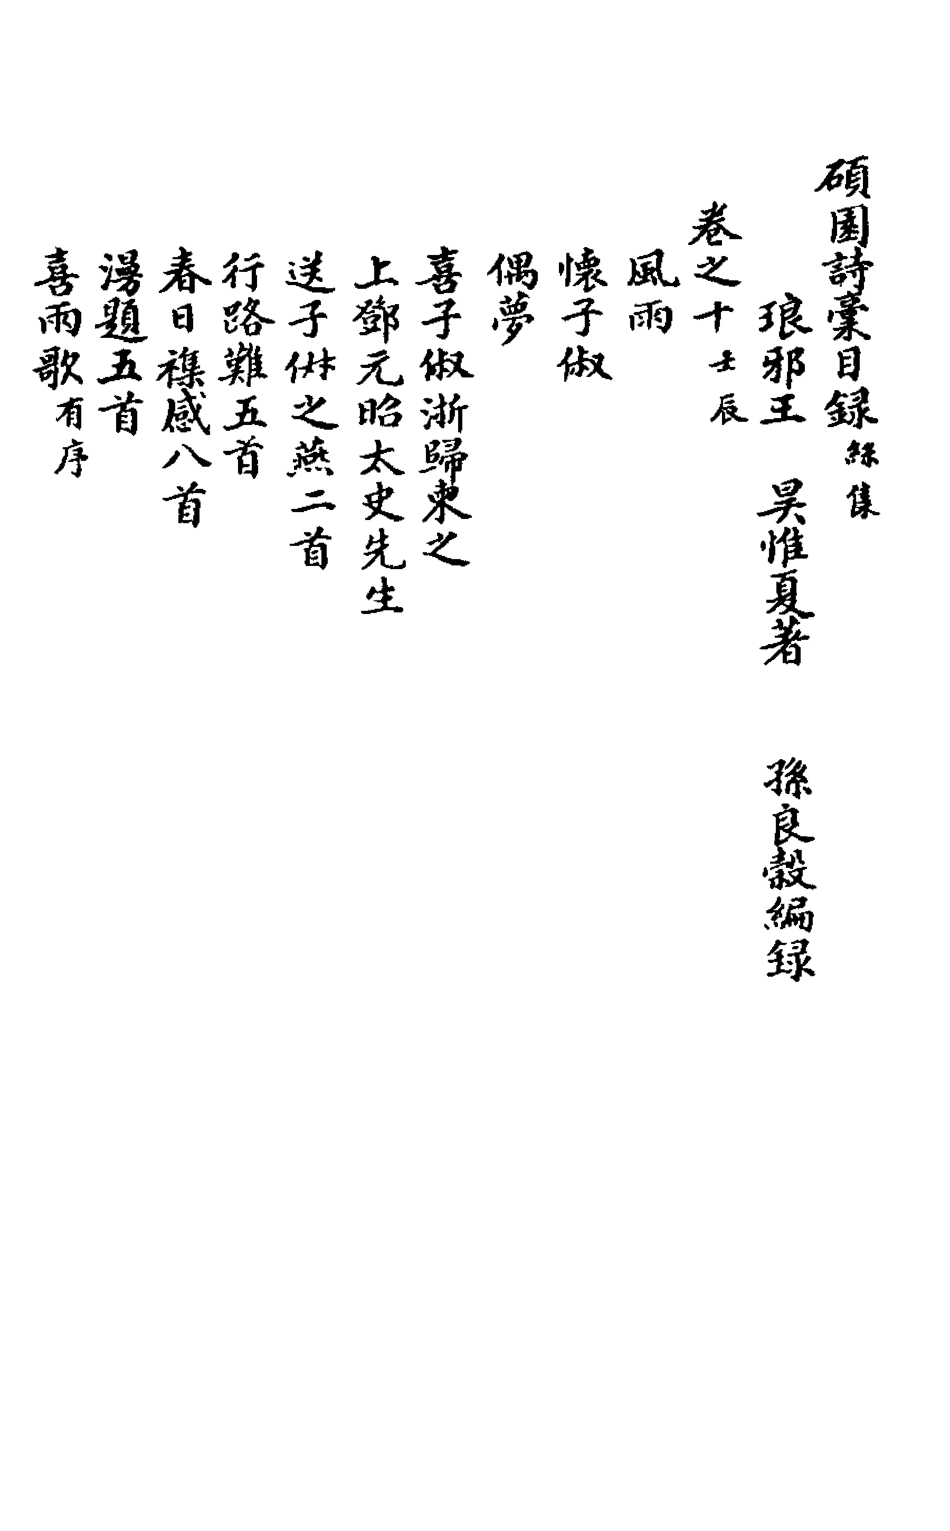 碩園詩稾目録 絲集
琅邪王 昊惟夏著 孫良穀編録
卷之十 壬辰
風雨
懷子俶
偶夢
喜子俶浙歸柬之
上鄧元昭太史先生
送子俶之燕二首
行路難五首
春日襍感八首
漫題五首
喜雨歌 有序